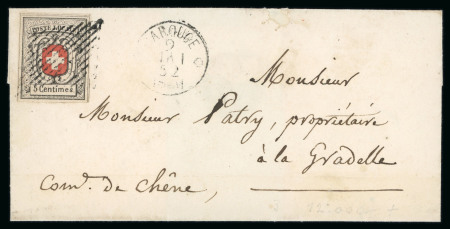 POSTE LOCALE
5 Centimes
CAROUGE
9
52
Monsieur
Monsieur Patry, propriétaire
à la Gradelle
Com.e de Chêne,